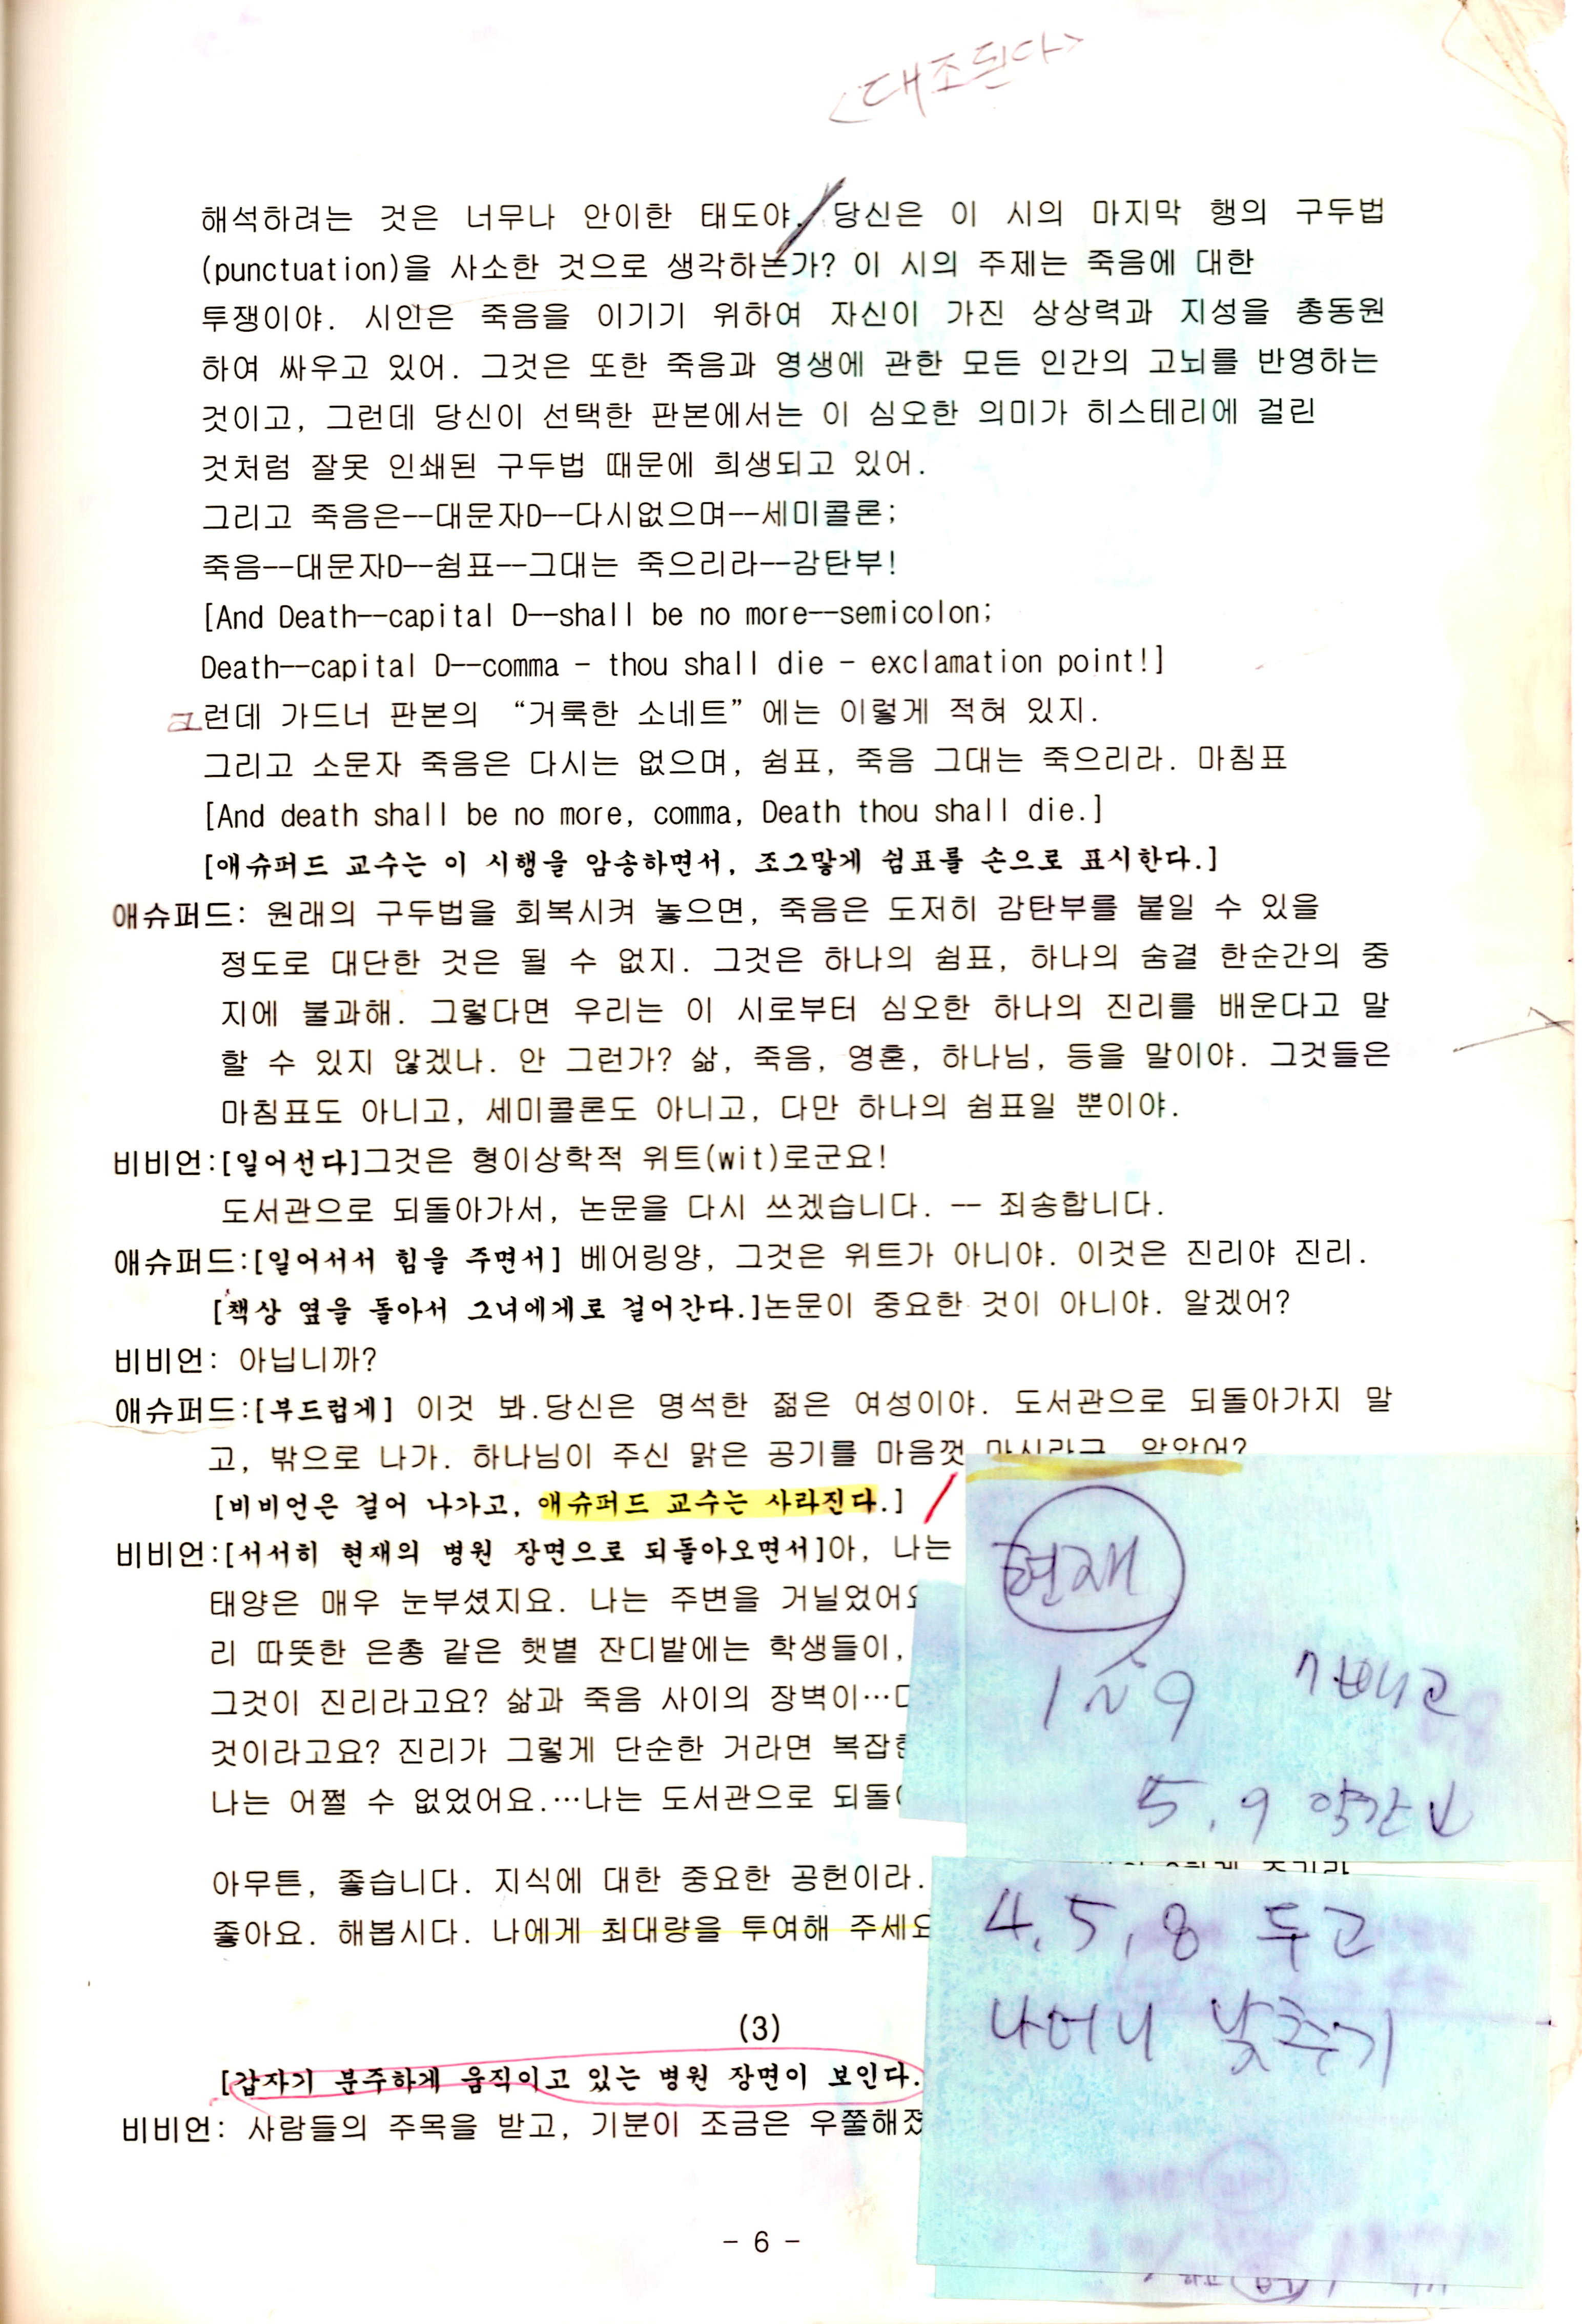 <대조된다>
해석하려는 것은 너무나 안이한 태도야. 당신은 이 시의 마지막 행의 구두법
(punctuation)을 사소한 것으로 생각하는가? 이 시의 주제는 죽음에 대한
투쟁이야. 시인은 죽음을 이기기 위하여 자신이 가진 상상력과 지성을 총동원
하여 싸우고 있어. 그것은 또한 죽음과 영생에 관한 모든 인간의 고뇌를 반영하는
것이고, 그런데 당신이 선택한 판본에서는 이 심오한 의미가 히스테리에 걸린
것처럼 잘못 인쇄된 구두법 때문에 희생되고 있어.
그리고 죽음은--대문자D--다시없으며--세미콜론;
죽음--대문자D--쉼표--그대는 죽으리라--감탄부!
[And Death--capital D--shall be no more--semicolon;
Death--capital D--comma - thou shall die - exclamation point!]
그런데 가드너 판본의 “거룩한 소네트”에는 이렇게 적혀 있지.
그리고 소문자 죽음은 다시는 없으며, 쉼표, 죽음 그대는 죽으리라. 마침표
[And death shall be no more, comma, Death thou shall die.]
[애슈퍼드 교수는 이 시행을 암송하면서, 조그맣게 쉼표를 손으로 표시한다.]
애슈퍼드: 원래의 구두법을 회복시켜 놓으면, 죽음은 도저히 감탄부를 붙일 수 있을
정도로 대단한 것은 될 수 없지. 그것은 하나의 쉼표, 하나의 숨결 한순간의 중
지에 불과해. 그렇다면 우리는 이 시로부터 심오한 하나의 진리를 배운다고 말
할 수 있지 않겠나. 안 그런가? 삶, 죽음, 영혼, 하나님, 등을 말이야. 그것들은
마침표도 아니고, 세미콜론도 아니고, 다만 하나의 쉼표일 뿐이야.
비비언:[일어선다]그것은 형이상학적 위트(wit)로군요!
도서관으로 되돌아가서, 논문을 다시 쓰겠습니다. -- 죄송합니다.
애슈퍼드:[일어서서 힘을 주면서] 베어링양, 그것은 위트가 아니야. 이것은 진리야 진리.
[책상 옆을 돌아서 그녀에게로 걸어간다.]논문이 중요한 것이 아니야. 알겠어?
비비언: 아닙니까?
애슈퍼드:[부드럽게] 이것 봐.당신은 명석한 젊은 여성이야. 도서관으로 되돌아가지 말
고, 밖으로 나가. 하나님이 주신 맑은 공기를 마음껏 마시라구. 알았어?
[비비언은 걸어 나가고, 애슈퍼드 교수는 사라진다.]
비비언:[서서히 현재의 병원 장면으로 되돌아오면서]아, 나는
태양은 매우 눈부셨지요. 나는 주변을 거닐었어요
리 따뜻한 은총 같은 햇볕 잔디밭에는 학생들이,
그것이 진리라고요? 삶과 죽음 사이의 장벽이…
것이라고요? 진리가 그렇게 단순한 거라면 복잡한
나는 어쩔 수 없었어요.…나는 도서관으로 되돌아
현재
1~9 7빼고
5, 9 약간↓
아무튼, 좋습니다. 지식에 대한 중요한 공헌이라.
좋아요. 해봅시다. 나에게 최대량을 투여해 주세요
4, 5, 8 두고
나머니 낮추기
(3)
[갑자기 분주하게 움직이고 있는 병원 장면이 보인다.
비비언: 사람들의 주목을 받고, 기분이 조금은 우쭐해졌
- 6 -